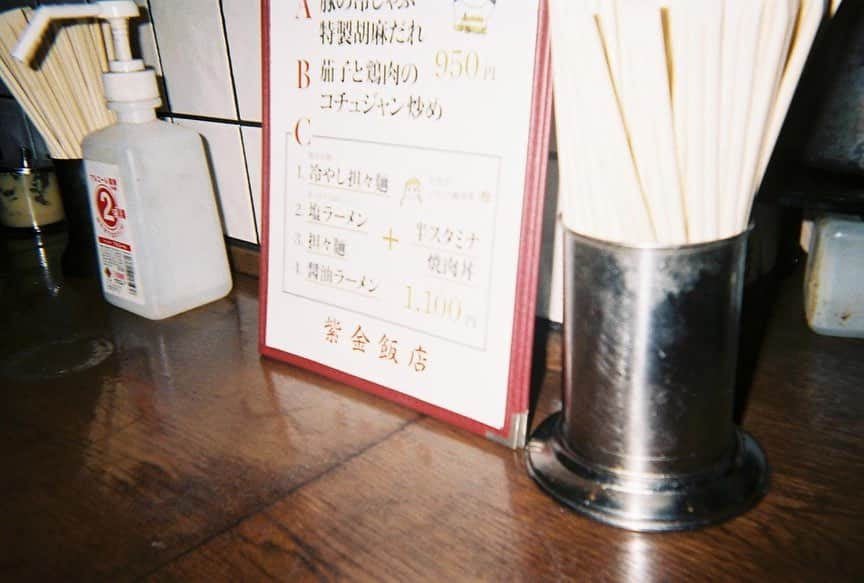 A 豚の冷しゃぶ
特製胡麻だれ
B 茄子と鶏肉の 950円
コチュジャン炒め
C
1. 冷やし担々麺
2. 塩ラーメン
3. 担々麺
4. 醤油ラーメン
+
半スタミナ
焼肉丼
1.100円
紫金飯店
2